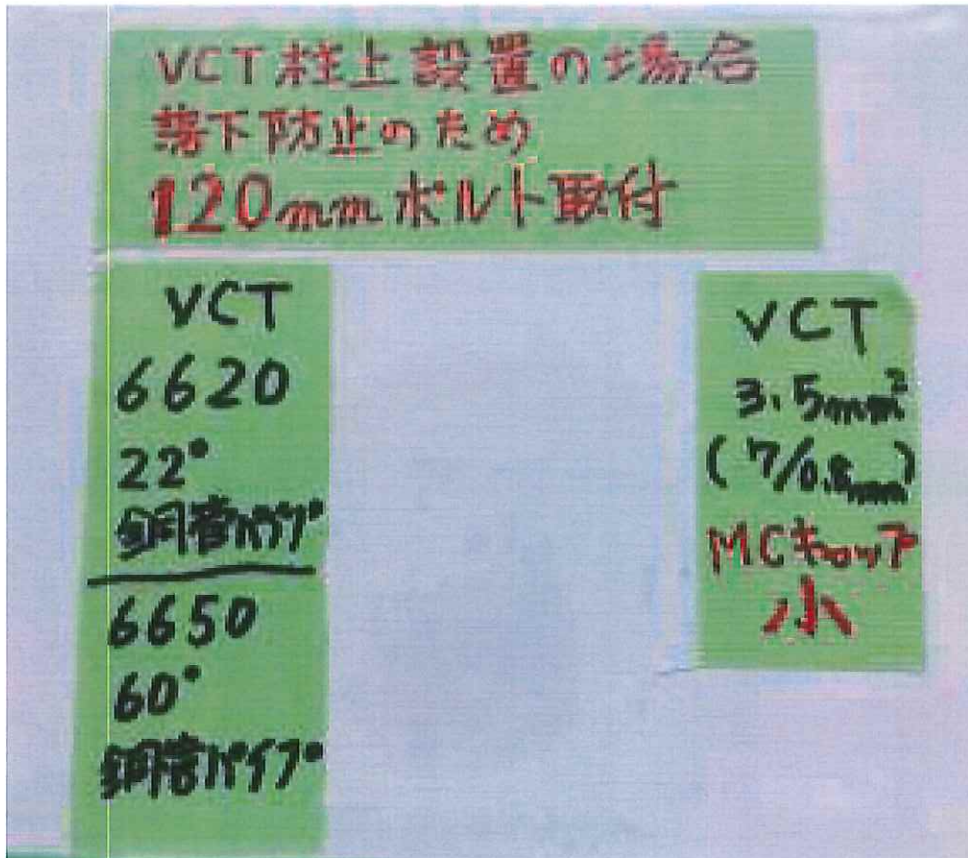 VCT柱上設置の場合
落下防止のため
120mmボルト取付
VCT
6620
22°
銅管パイプ
6650
60°
銅管パイプ
VCT
3.5mm²
(7/0.8mm)
MCキャップ
小